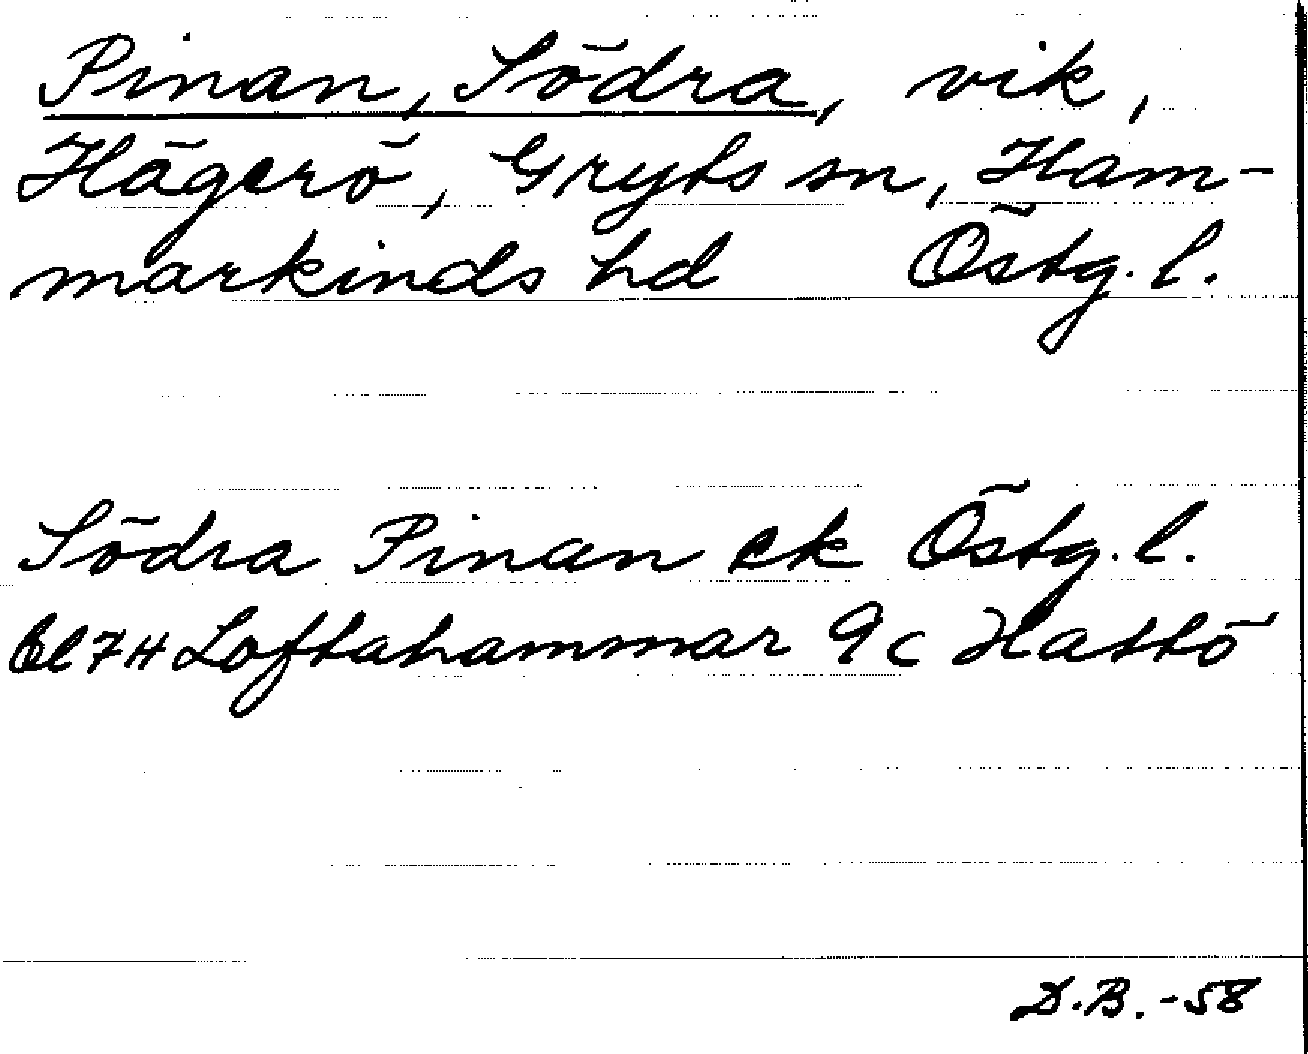 Pinan, Södra, vik,
Hägerö, Gryts sn, Ham-
markinds hd Östg. l.
Södra Pinan ek Östg. l.
Bl 7H Loftahammar 9c Hattö
D.B. -58